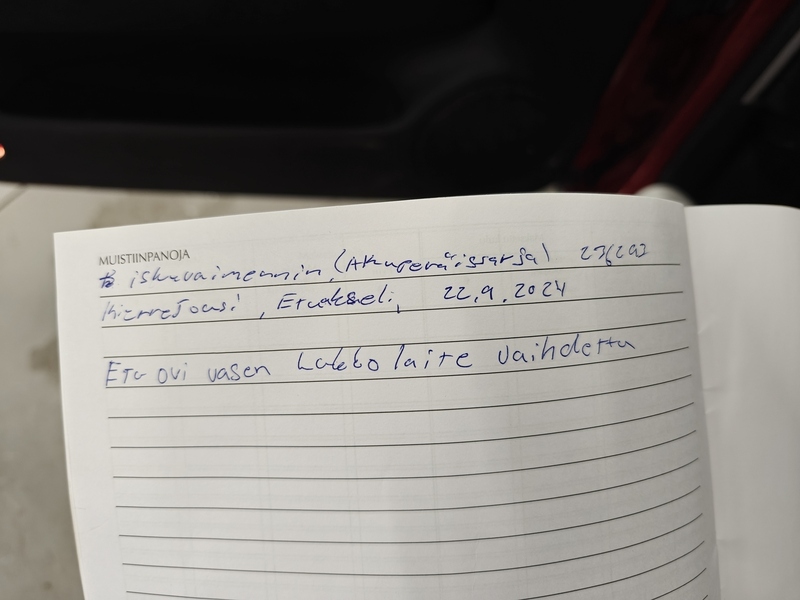 MUISTIINPANOJA
iskuvaimennin, (Alkuperäissarja)
Kierrejousi, Etuakseli, 22.9.2024
Etu ovi vasen Lukko laite vaihdettu